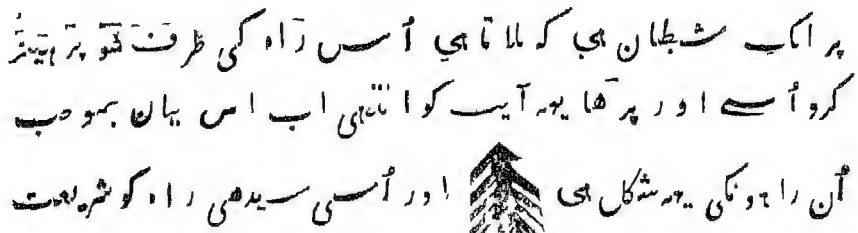 پر ایک شیطان ہی کہ بلاتا ہی اُس راہ کی طرف تو پرہیز
کرو اُسے اور پڑھا یہہ آیت کو انتہی اب اس بیان بموجب
اُن راہونکی یہہ شکل ہی اور اُسی سیدھی راہ کو شریعت